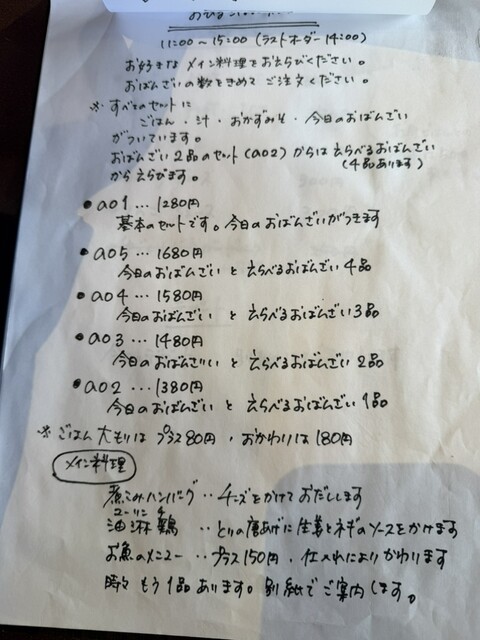 11:00〜15:00 (ラストオーダー 14:00)
お好きな メイン料理を おえらびください。
おばんざいの数をきめて ご注文ください。
※ すべてのセットに
ごはん・汁・おかずみそ・今日のおばんざい
がついています。
おばんざい2品のセット(a02)からは えらべるおばんざい
(4品あります)
からえらびます。
• a01 … 1280円
基本のセットです。今日のおばんざいがつきます
• a05 … 1680円
今日のおばんざい と えらべるおばんざい 4品
• a04 … 1580円
今日のおばんざい と えらべるおばんざい 3品
• a03 … 1480円
今日のおばんざい と えらべるおばんざい 2品
• a02 … 1380円
今日のおばんざい と えらべるおばんざい 1品
※ ごはん 大もりは プラス80円、おかわりは 180円
メイン料理
煮こみハンバーグ ‥ チーズをかけておだしします
ユーリンチ
油淋鶏 ‥ とりの唐あげに生姜とネギのソースをかけます
お魚のメニュー ‥ プラス150円、仕入れによりかわります
時々 もう1品あります。別紙でご案内します。